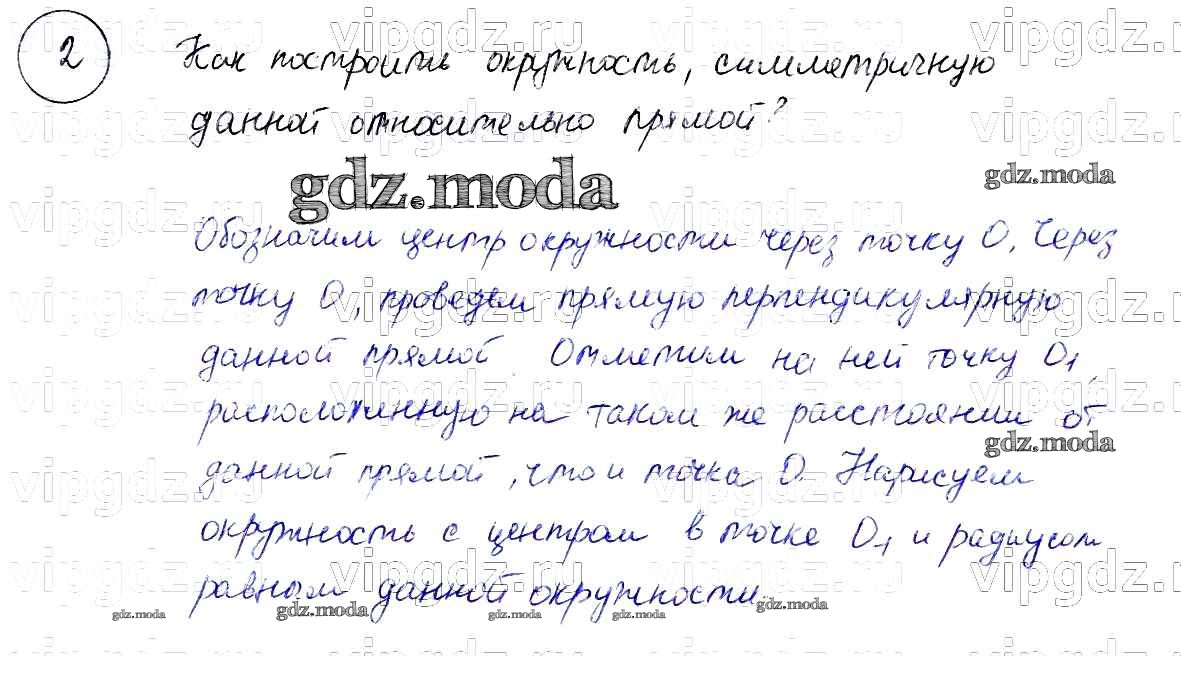 2
Как построить окружность, симметричную
данной относительно прямой?
gdz.moda
gdz.moda
Обозначим центр окружности через точку O. Через
точку O, проведем прямую перпендикулярную
данной прямой Отметим на ней точку O1,
расположенную на таком же расстоянии от
gdz.moda
данной прямой, что и точка O. Нарисуем
окружность с центром в точке O1 и радиусом
равным данной окружности.
gdz.moda gdz.moda gdz.moda gdz.moda gdz.moda
vipgdz.ru vipgdz.ru vipgdz.ru vipgdz.ru